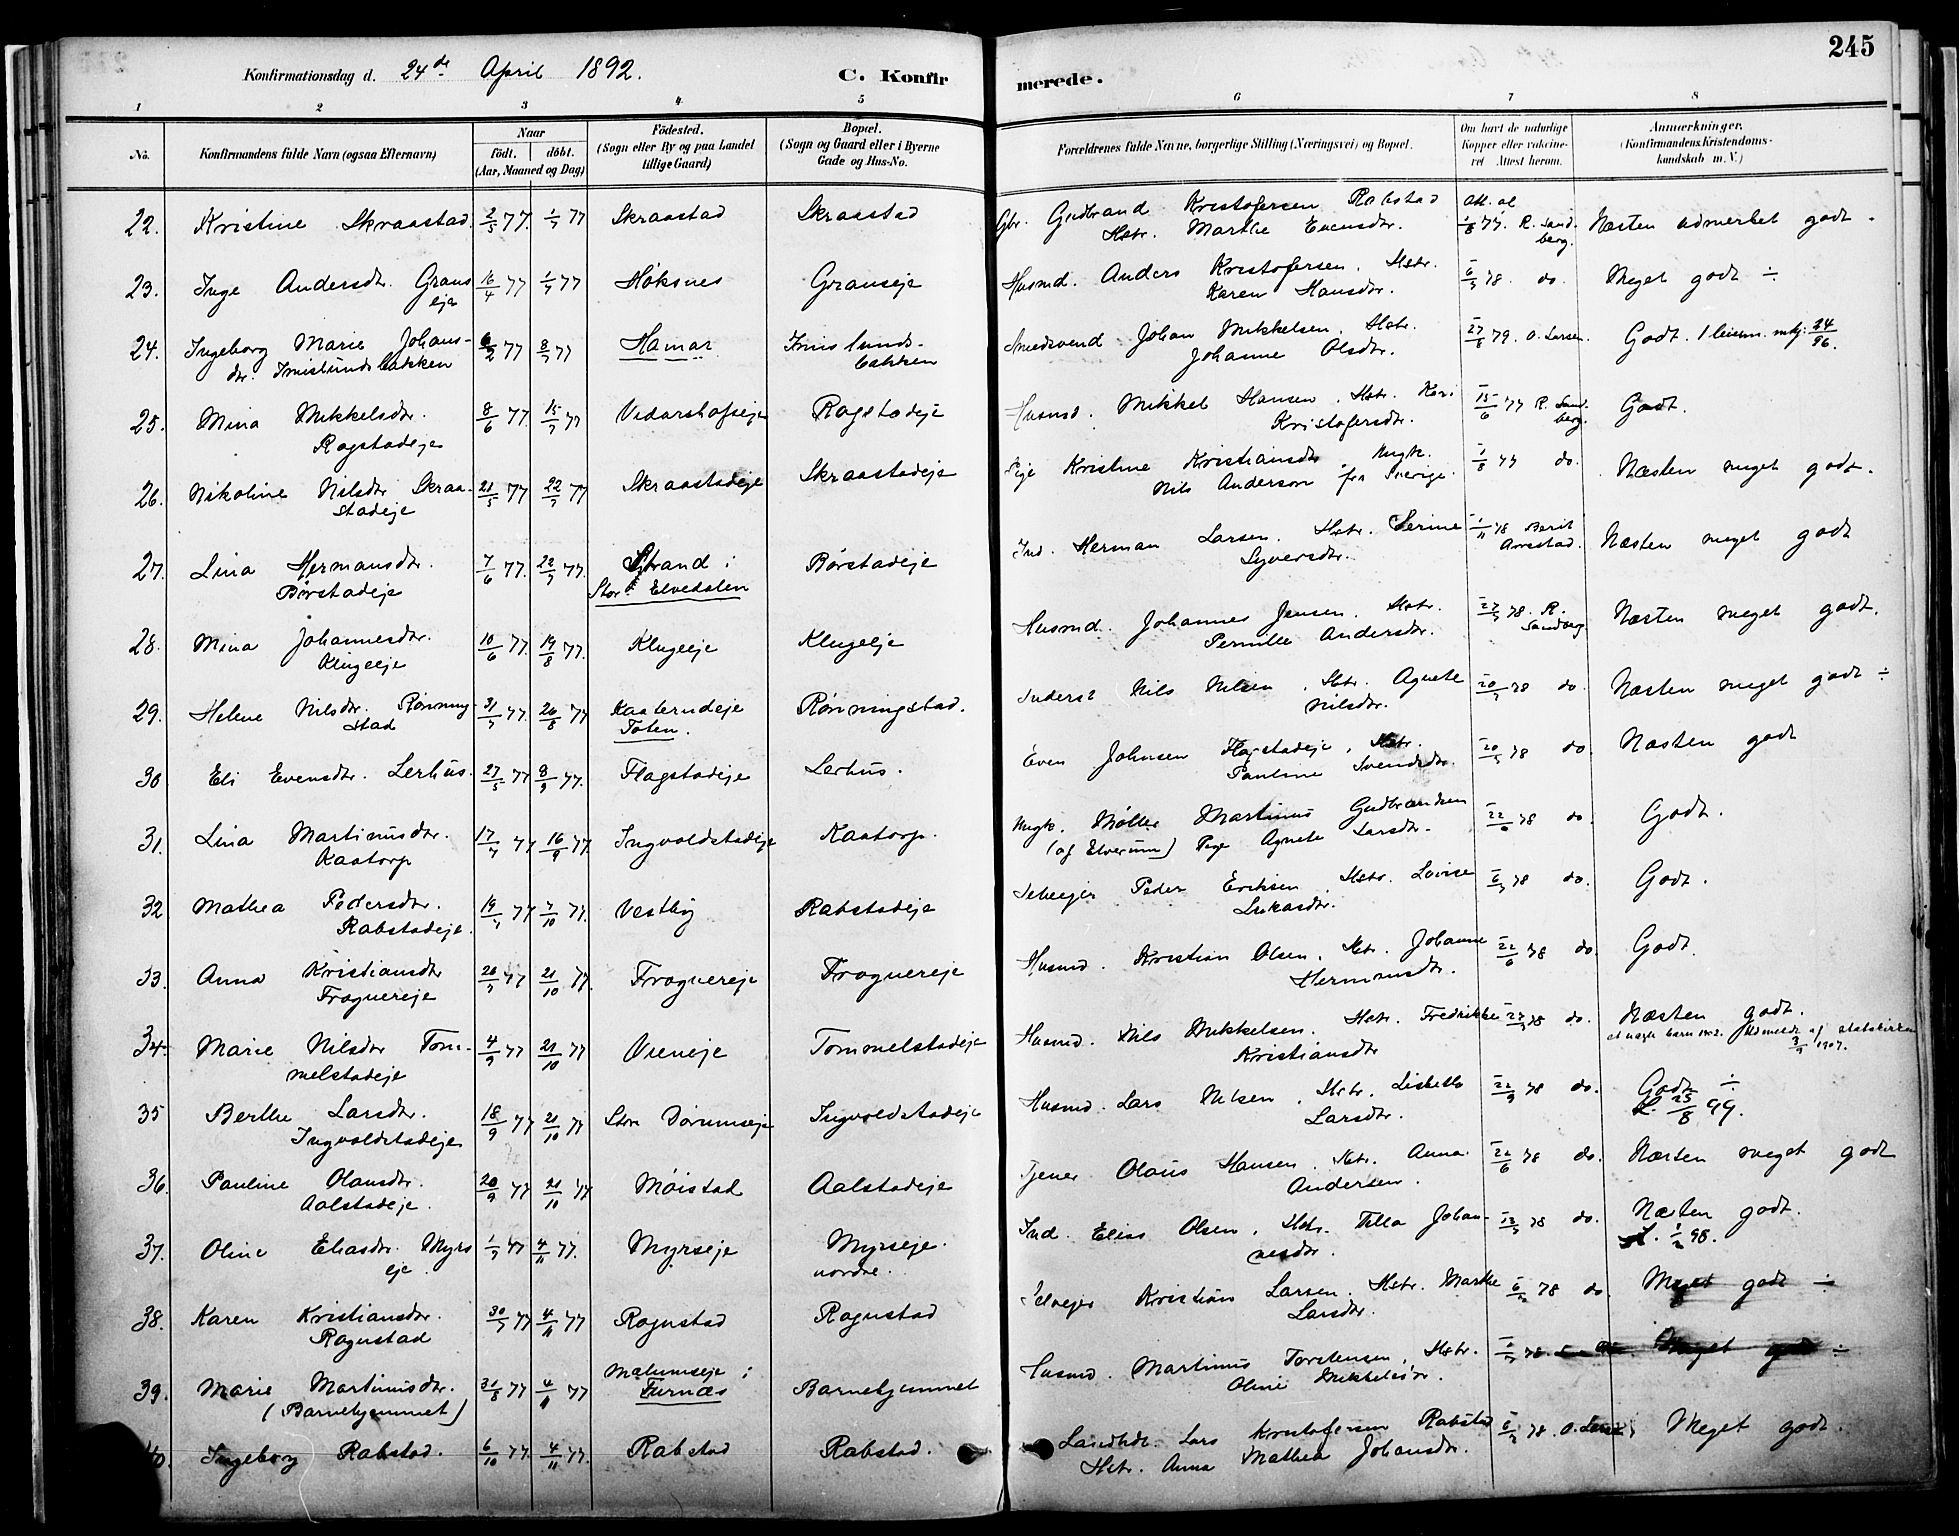 245
Konfirmationsdag d. 24de April 1892.
C. Konfirmerede.
1 2 3 4 5 6 7 8
No.
Konfirmandens fulde Navn (ogsaa Efternavn)
Naar
født. døbt.
(Aar, Maaned og Dag)
Fødested.
(Sogn eller By og paa Landet
tillige Gaard)
Bopæl.
(Sogn og Gaard eller i Byerne
Gade og Hus-No.
Forældrenes fulde Navne, borgerlige Stilling (Næringsvei) og Bopæl.
Om havt de naturlige
Kopper eller vakcine-
ret Attest herom.
Anmærkninger.
(Konfirmandens Kristendoms-
kundskab m. V.)
22. Kristine Skraastad. 2/5 77. 1/7 77 Skraastad Skraastad Gbr. Gudbrand Kristofersen Rabstad
Hstr. Marthe Evensdtr. 1/8 77. R. Sand-
berg. Næsten udmerket godt.
23. Inge Andersdtr. Grans
eje 16/4 77 1/7 77 Høksnes Granseje Husmd. Anders Kristofersen. Hstr.
Karen Hansdtr. 78. do. Meget godt ÷
24. Ingeborg Marie Johans-
dtr. Imislundsbakken 6/2 77 8/7 77 Hamar Imislunds-
bakken Smedsvend Johan Mikkelsen. Hstr.
Johanne Olsdtr. 27/8 79. O. Larsen. Godt. 24/96.
25. Mina Mikkelsdtr.
Rogstadeje 8/6 77. 15/7 77 Vidarshofseje Rogstadeje Husmd. Mikkel Hansen. Hstr. Kari
Kristofersdtr. 15/6 77 R. Sand-
berg. Godt.
26. Nikoline Nilsdtr Skraa-
stadeje 21/5 77 22/7 77 Skraastadeje Skraastadeje Pige Kristine Kristiansdtr. Ungk.
Nils Anderson fra Sverige. 1/8 77 do. Næsten meget godt.
27. Lina Hermansdtr.
Børstadeje 7/6 77. 22/7 77. Strand i
Stor-Elvedalen Børstadeje Ind. Herman Larsen. Hstr. Serine
Syversdtr. 1/11 78 Berit
Arnstad. Næsten meget godt
28. Mina Johannesdtr.
Klugeeje 10/6 77. 19/8 77. Klugeeje Klugeeje Husmd. Johannes Jensen. Hstr.
Pernille Andersdtr. 78. R.
Sandberg Næsten meget godt.
29. Helene Nilsdtr. Rønning-
stad 31/7 77. 26/8 77 Kaalerudeje
Toten. Rønningstad. Inderst Nils Nilsen, Hstr. Agnete
Nilsdtr. 78 do. Næsten meget godt ÷
30. Eli Evensdtr. Lerhus. 27/5 77 8/9 77. Flagstadeje Lerhus. Even Johnsen Flagstadeje, Hstr.
Pauline Svendsdtr. 78 do. Næsten godt
31. Lina Martinusdtr.
Kaatorp 17/7 77 16/9 77. Ingvoldstadeje Kaatorp. Ungk. Møller Martinus Gudbrandsen
(af Elverum) Pige Agnete Larsdtr. 22/6 78 do. Godt.
32 Mathea Pedersdtr.
Rabstadeje. 19/7 77 7/10 77. Vestby Rabstadeje Selveejer Peder Eriksen, Hstr. Lovise
Lukasdtr. 78 do. Godt.
33. Anna Kristiansdtr
Frognereje 77 21/10 77. Frognereje Frognereje Husmd. Kristian Olsen, Hstr. Johanne
Hermansdtr. 22/6 78 do. Godt.
34 Marie Nilsdtr Tom-
melstadeje 4/9 77 21/10 77 Vieneje Tommelstadeje Husmd. Nils Mikkelsen. Hstr. Fredrikke
Kristiansdtr 78 do. Næsten godt.
et uægte barn 1902. Udmeldt af statskirken
3/9 1907.
35 Berthe Larsdtr.
Ingvoldstadeje 18/9 77 21/10 77 Store Dørumseje Ingvoldstadeje Husmd. Lars Nilsen, Hstr. Lisbeth
Larsdtr. 22/9 78 do. Godt ÷
25/8 99.
36. Pauline Olausdtr.
Aalstadeje. 20/9 77 21/10 77 Møistad Aalstadeje Tjener Olaus Hansen. Hstr. Anna
Andersen. 22/6 78 do. Næsten meget godt
37. Oline Eliasdtr. Myrs
eje. 77 4/11 77. Myrseje Myrseje.
nordre. Ind. Elias Olsen, Hstr. Johan-
nesdtr. 78 do. Næsten godt.
1/2 98.
38. Karen Kristiansdtr.
Rognstad 30/7 77 4/11 77 Rognstad Rognstad Selvejer Kristian Larsen. Hstr. Marthe
Larsdtr. 78 do. Meget godt ÷
39. Marie Martinusdtr.
(Barnehjemmet) 31/8 77 4/11 77 Malumseje i
Furnæs Barnehjemmet Husmd. Martinus Torstensen, Hstr.
Oline Mikkelsdtr. 78. Meget godt ÷
40. Ingeborg Rabstad. 6/10 77. 4/11 77. Rabstad Rabstad. Lars Kristofersen Rabstad
Hstr. Anna Mathea Johansdtr. 78 Meget godt.